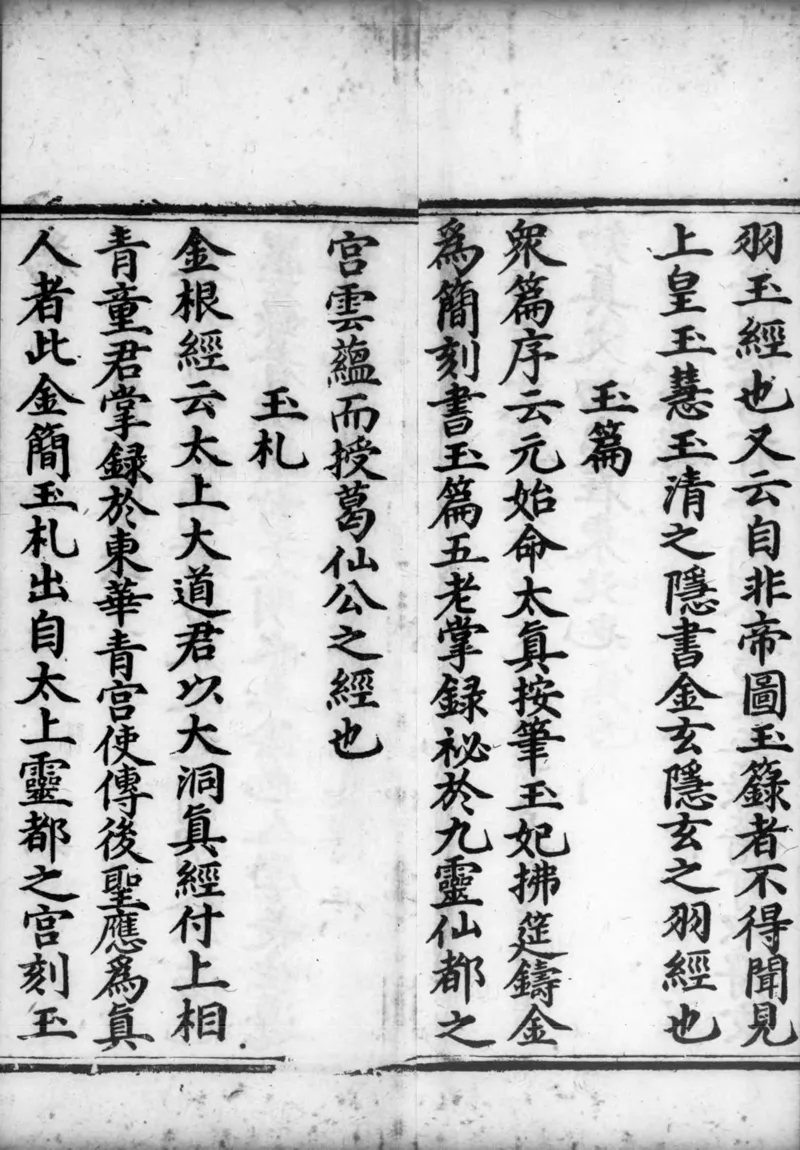 羽玉經也又云自非帝圖玉籙者不得聞見
上皇玉慧玉清之隱書金玄隱玄之羽經也
玉篇
衆篇序云元始命太真按筆玉妃拂筵鑄金
爲簡刻書玉篇五老掌録祕於九靈仙都之
宫雲蘊而授葛仙公之經也
玉札
金根經云太上大道君以大洞真經付上相
青童君掌録於東華青宫使傳後聖應爲真
人者此金簡玉札出自太上靈都之宫刻玉